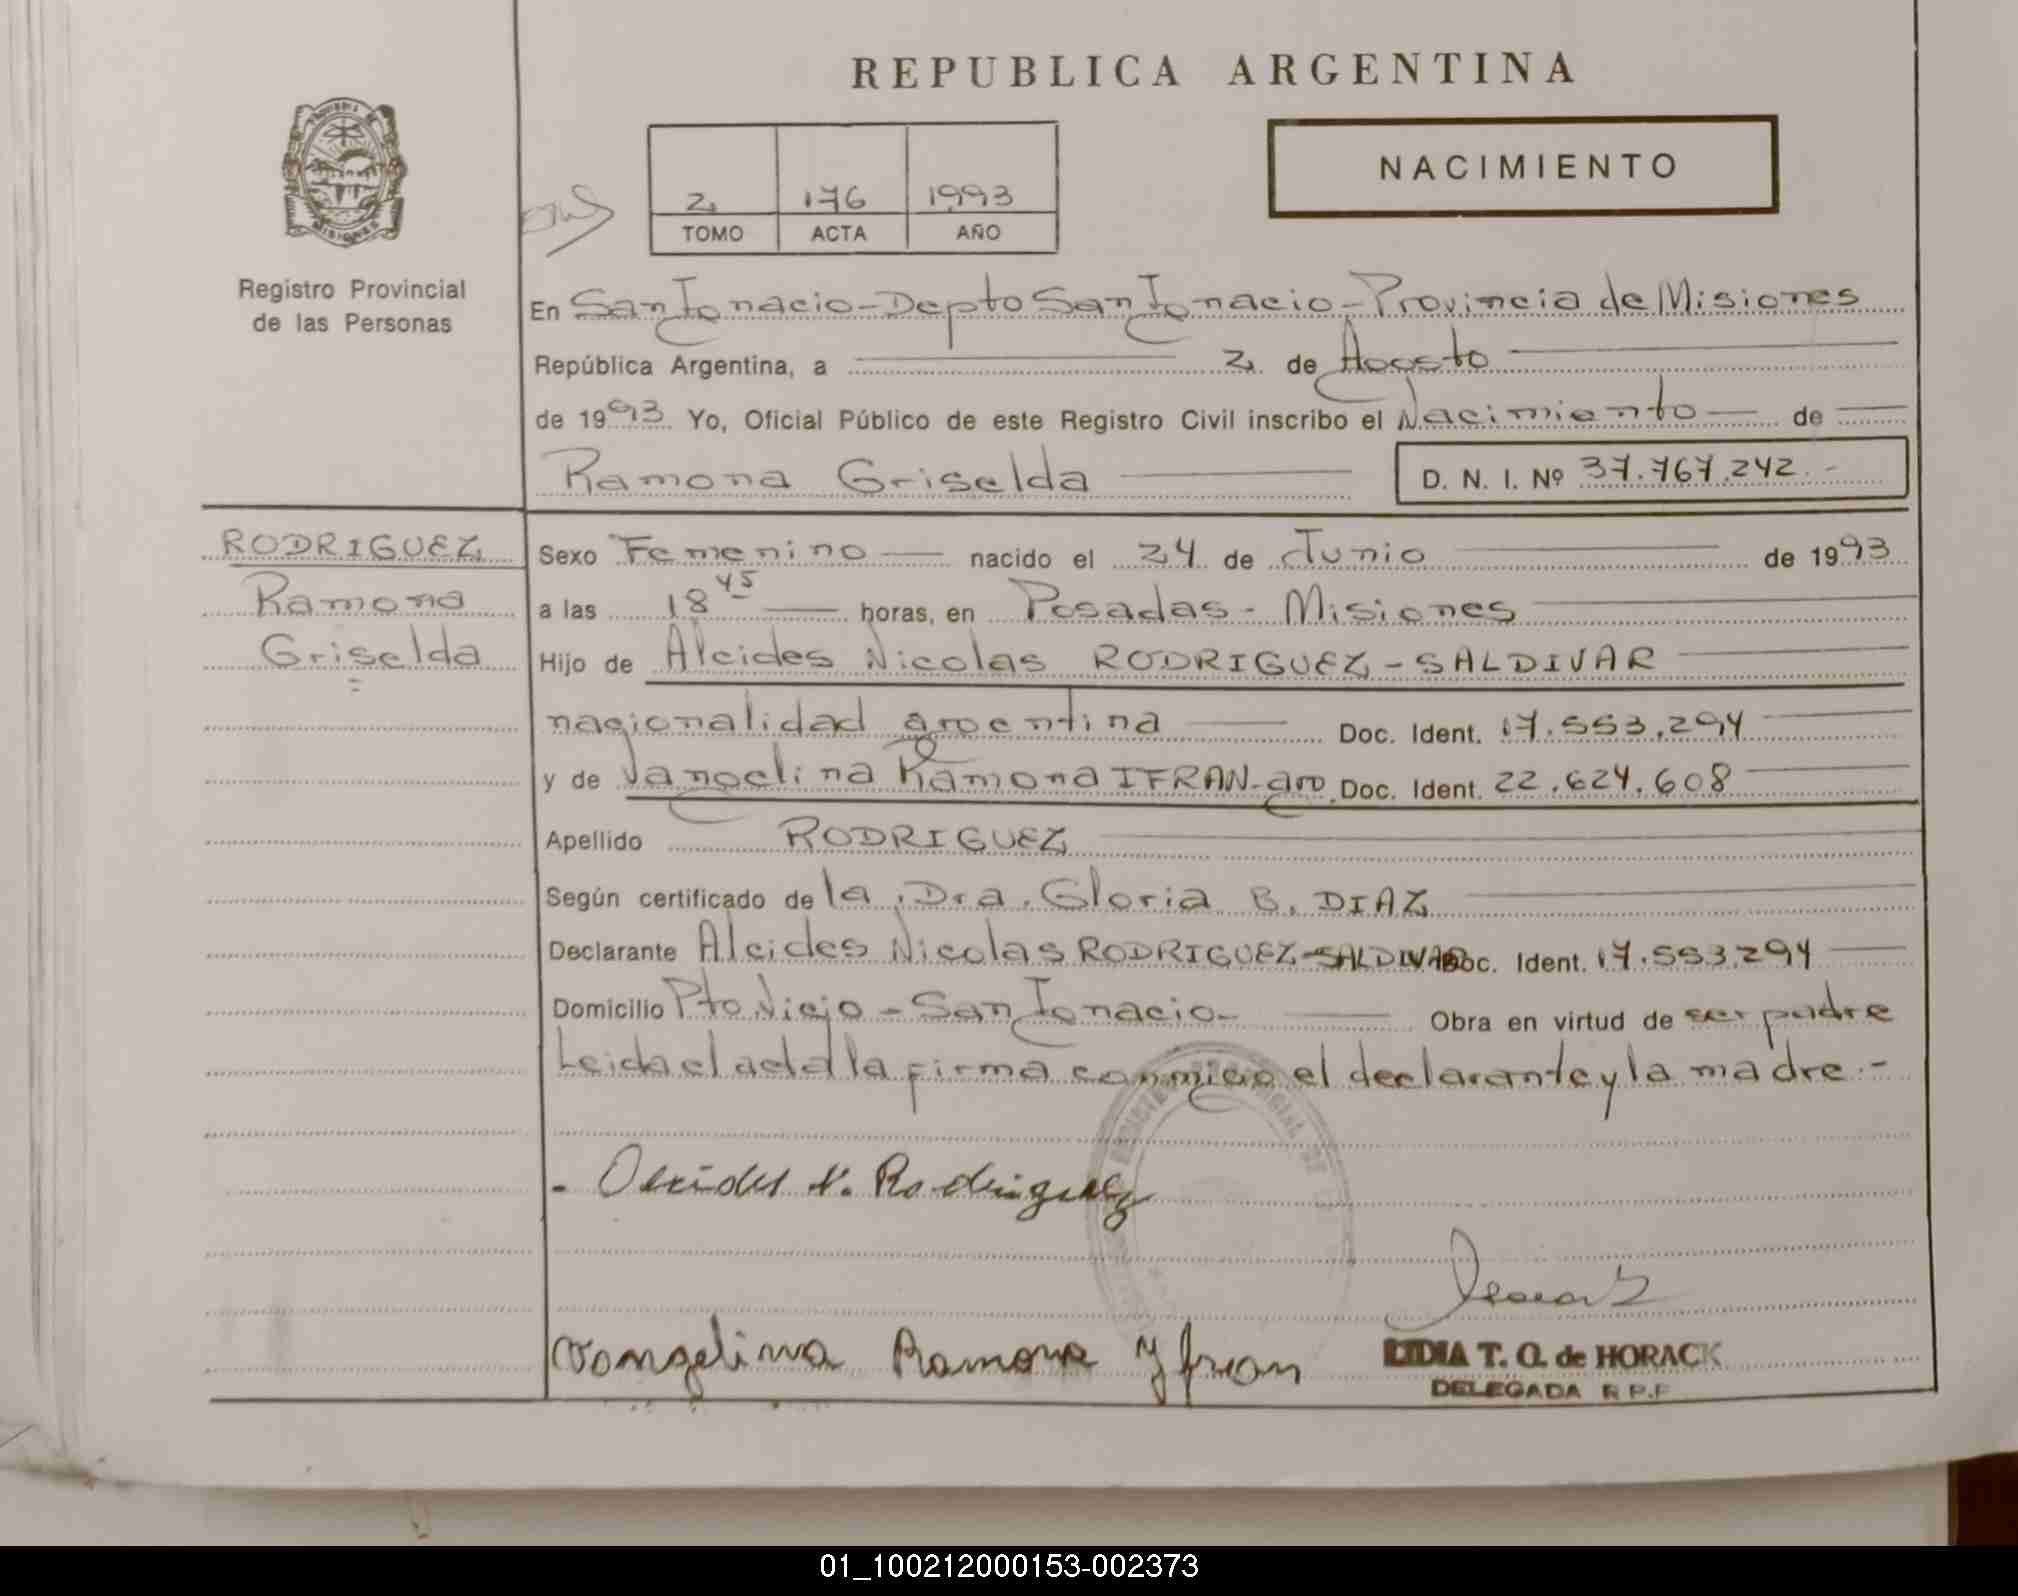 REPUBLICA ARGENTINA
NACIMIENTO
2 176 1993
TOMO ACTA AÑO
Registro Provincial
de las Personas
En San Ignacio - Depto San Ignacio - Provincia de Misiones
República Argentina, a 2 de Agosto
de 1993 Yo, Oficial Público de este Registro Civil inscribo el Nacimiento de
Ramona Griselda D. N. I. Nº 37.767.242.-
RODRIGUEZ
Ramona
Griselda
Sexo Femenino nacido el 24 de Junio de 1993
a las 18 45 horas, en Posadas - Misiones
Hijo de Alcides Nicolas RODRIGUEZ - SALDIVAR
nacionalidad argentina Doc. Ident. 17.553.294
y de Vangelina Ramona IFRAN - arg. Doc. Ident. 22.624.608
Apellido RODRIGUEZ
Según certificado de la Dra. Gloria B. DIAZ
Declarante Alcides Nicolas RODRIGUEZ - SALDIVAR Doc. Ident. 17.553.294
Domicilio Pto Viejo - San Ignacio - Obra en virtud de ser padre
Leida el acta la firma conmigo el declarante y la madre.-
Alcides N. Rodriguez
Vangelina Ramona Yfran
LIDIA T. O. de HORACK
DELEGADA R.P.P
01_100212000153-002373